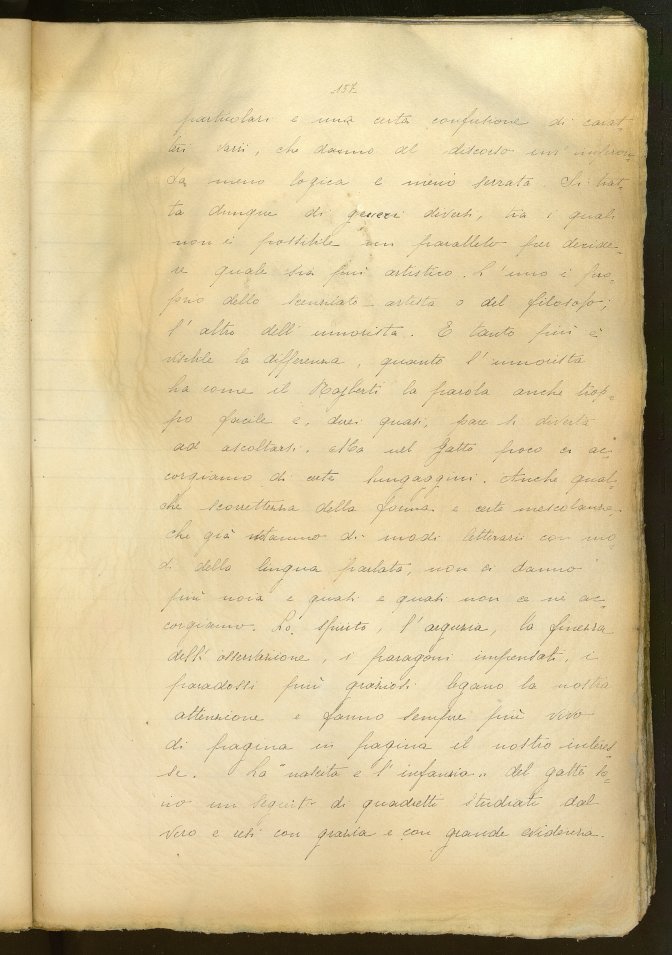 157
particolari e una certa confusione di carat-
teri varii, che danno al discorso un
da meno logica e meno serrata. Si trat-
ta dunque di generi diversi, tra i quali
non è possibile un parallelo per decide-
re quale sia più artistico. L'uno è pro-
prio dello scienziato artista o del filosofo;
l'altro dell'umorista. E tanto più è
visibile la differenza, quanto l'umorista
ha come il Rajberti la parola anche trop-
po facile e, direi quasi, pare si diverta
ad ascoltarsi. Ma nel Gatto poco ci ac-
corgiamo di certe lungaggini. Anche qual-
che scorrettezza della forma e certe mescolanze
che già notammo di modi letterari con mo-
di della lingua parlata, non ci danno
più noia e quasi e quasi non ce ne ac-
corgiamo. Lo spirito, l'arguzia, la finezza
dell'osservazione, i paragoni impensati, i
paradossi più graziosi legano la nostra
attenzione e fanno sempre più vivo
di pagina in pagina il nostro interes-
se. La "nascita e l'infanzia" del gatto so-
no un seguito di quadretti studiati dal
vero e resi con grazia e con grande evidenza.